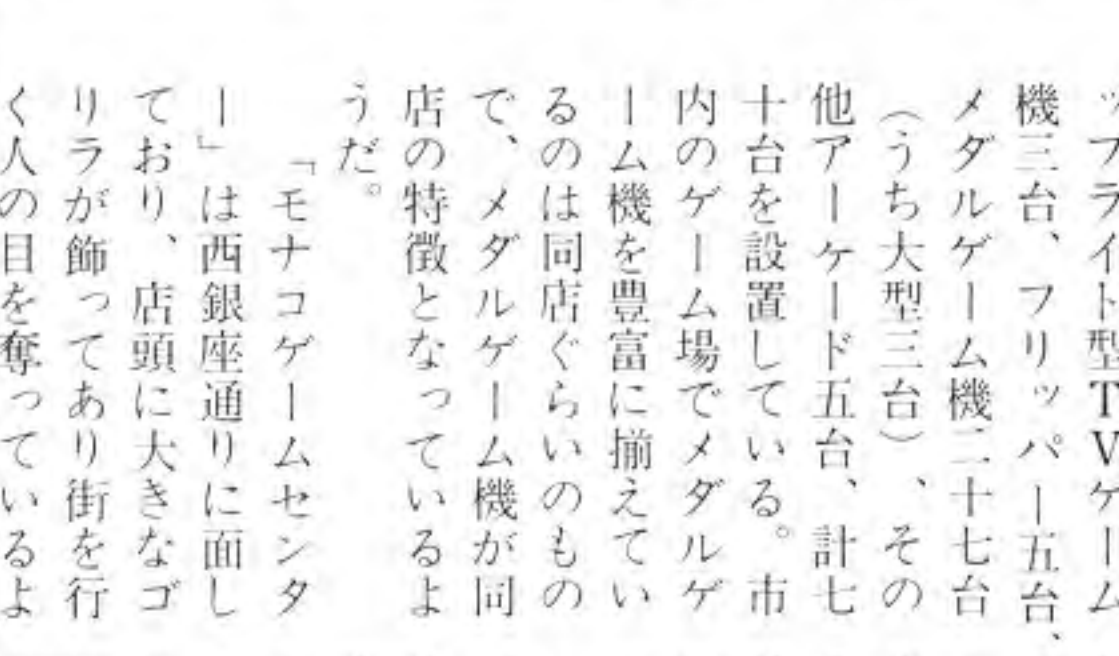 ップライト型TVゲーム
機三台、フリッパー五台、
メダルゲーム機二十七台
（うち大型三台）、その
他アーケード五台、計七
十台を設置している。市
内のゲーム場でメダルゲ
ーム機を豊富に揃えてい
るのは同店ぐらいのもの
で、メダルゲーム機が同
店の特徴となっているよ
うだ。
「モナコゲームセンタ
ー」は西銀座通りに面し
ており、店頭に大きなゴ
リラが飾ってあり街を行
く人の目を奪っているよ